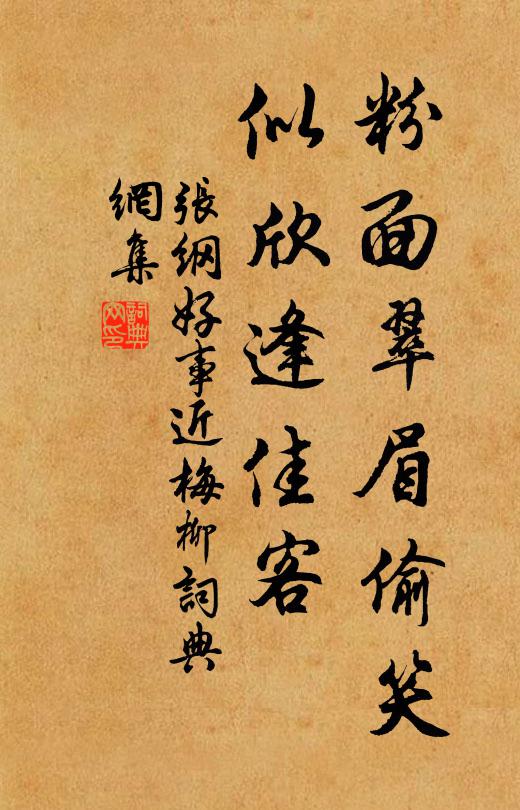 粉面翠眉偷笑
似欣逢佳客
張綱好事近梅柳詞典
網集
詞典